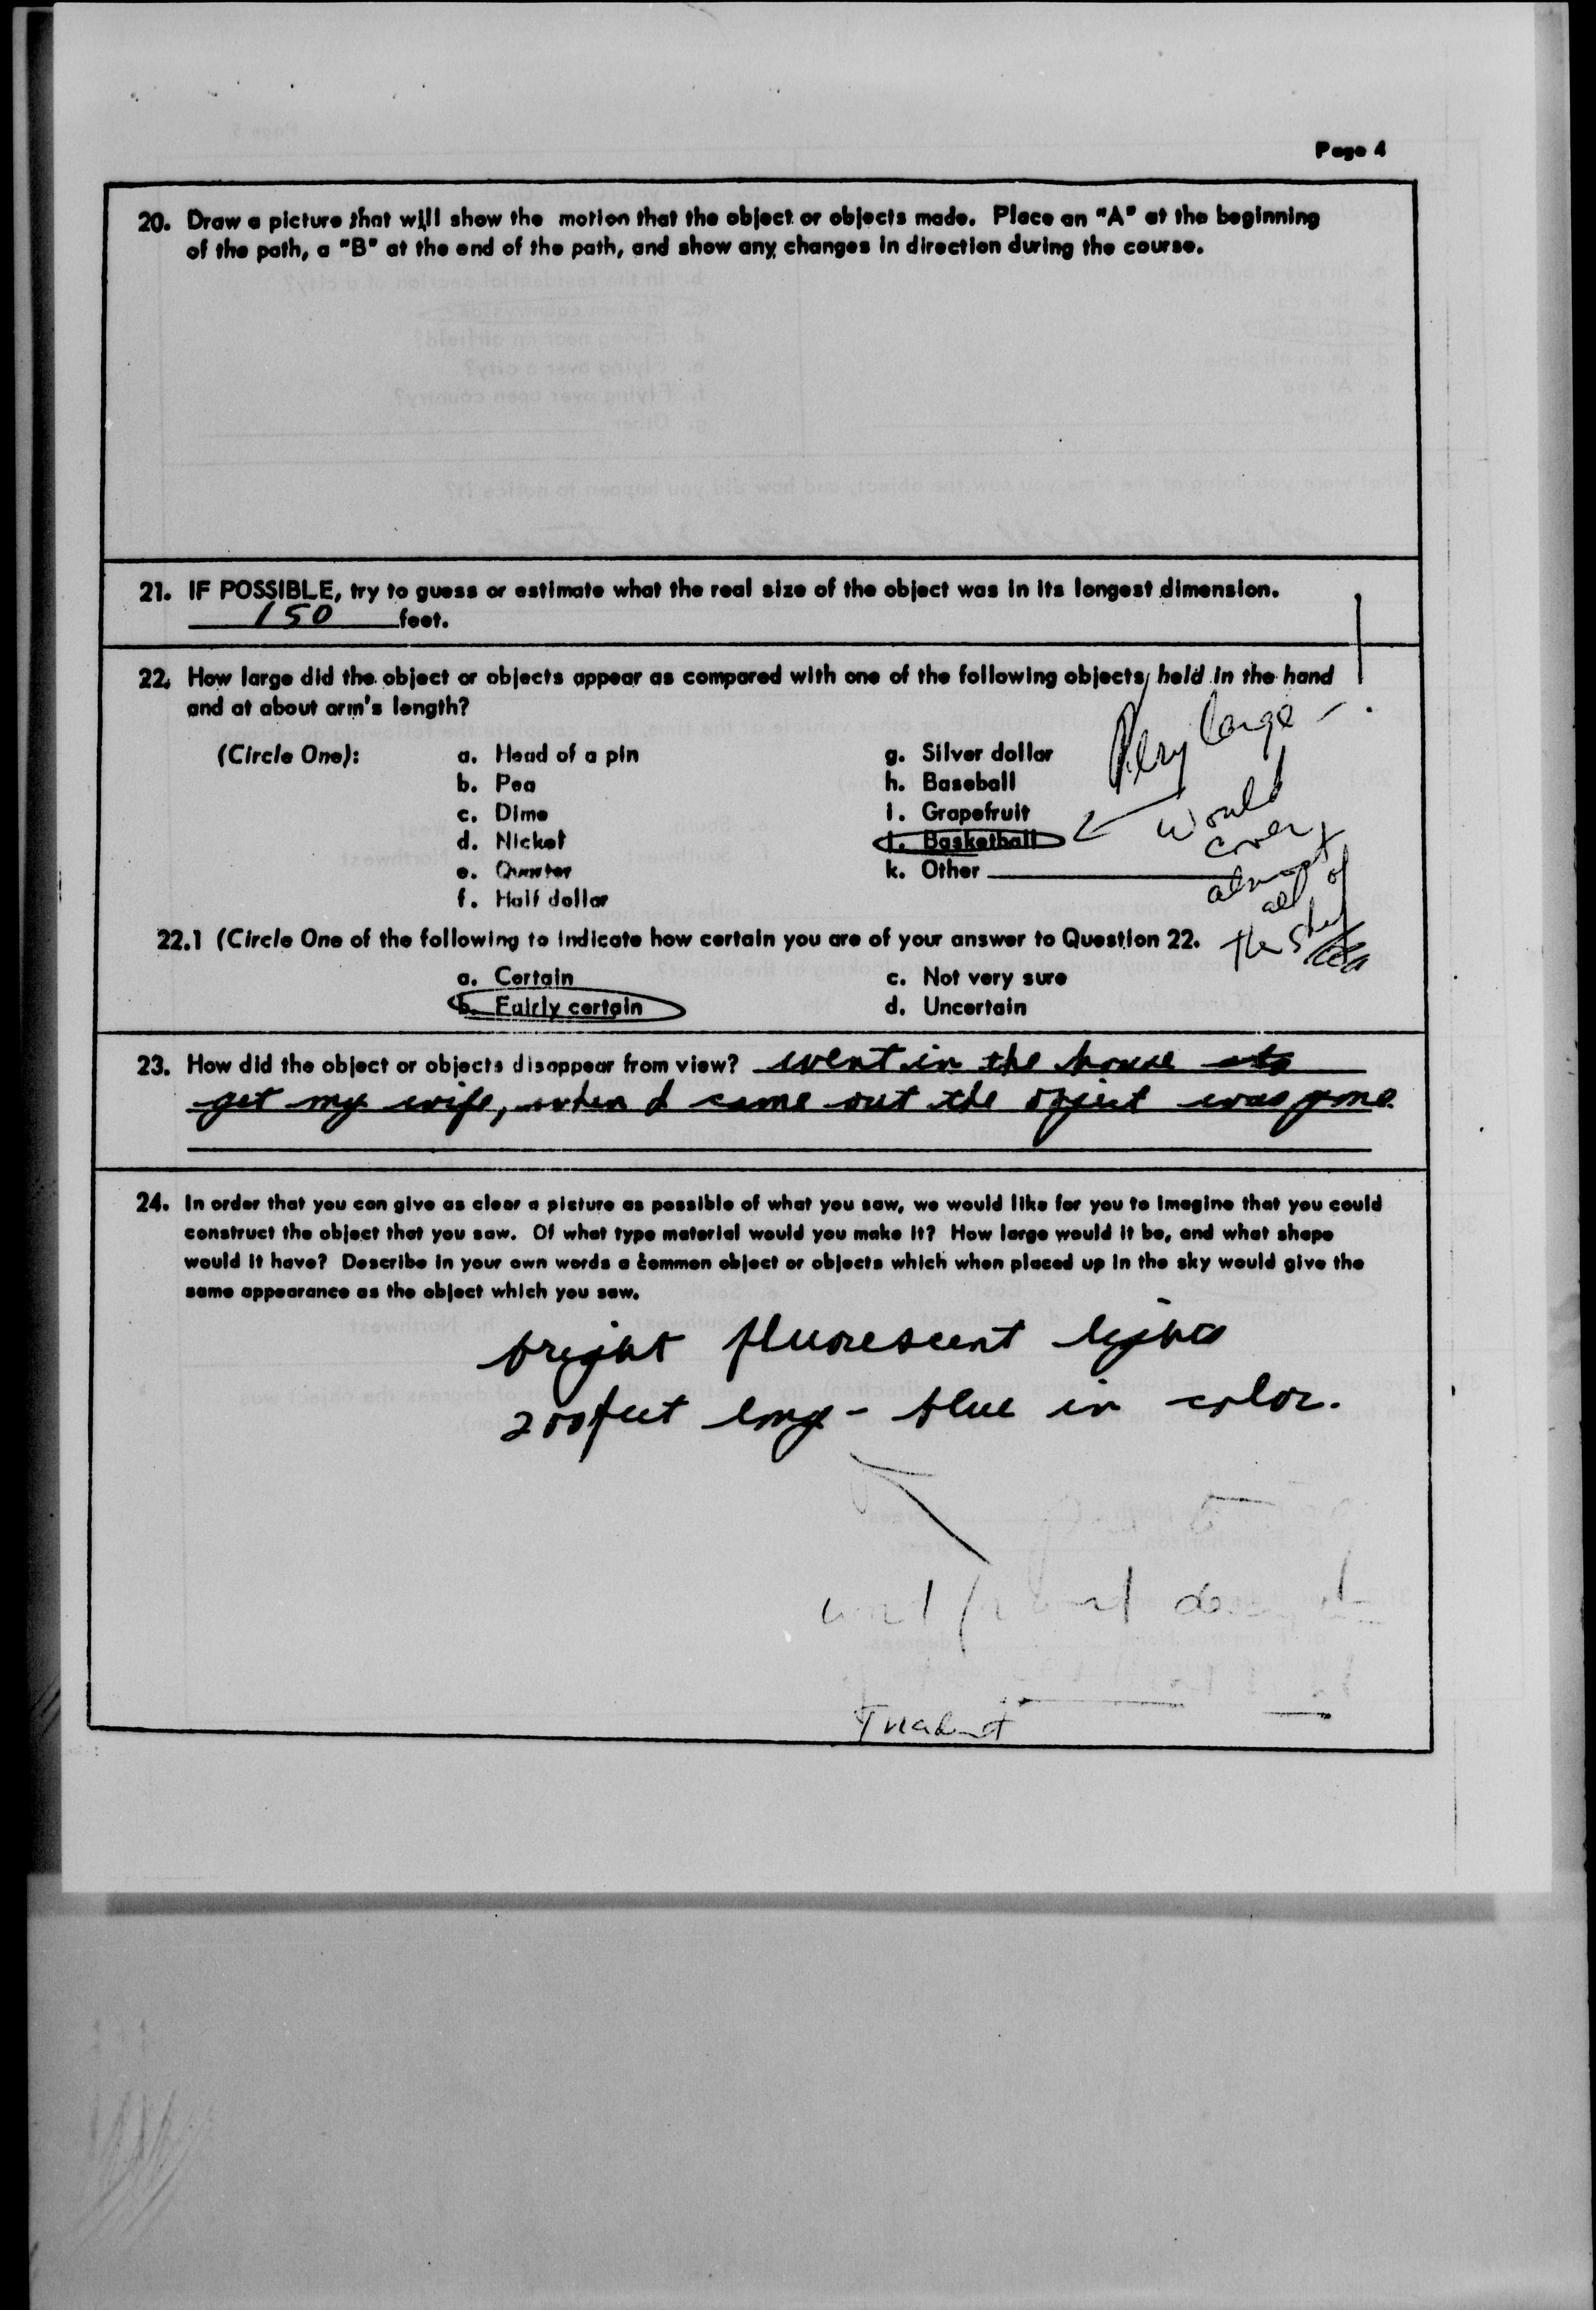 Page 4
20. Draw a picture that will show the motion that the object or objects made. Place an "A" at the beginning
of the path, a "B" at the end of the path, and show any changes in direction during the course.
21. IF POSSIBLE, try to guess or estimate what the real size of the object was in its longest dimension.
150 feet.
22. How large did the object or objects appear as compared with one of the following objects held in the hand
and at about arm's length?
(Circle One):
a. Head of a pin
b. Pea
c. Dime
d. Nickel
e. Quarter
f. Half dollar
g. Silver dollar
h. Baseball
i. Grapefruit
j. Basketball
k. Other
Very large -
would
cover
almost
all of
the sky
22.1 (Circle One of the following to indicate how certain you are of your answer to Question 22.
a. Certain
b. Fairly certain
c. Not very sure
d. Uncertain
23. How did the object or objects disappear from view? went in the house to
get my wife, when I came out the object was gone.
24. In order that you can give as clear a picture as possible of what you saw, we would like for you to imagine that you could
construct the object that you saw. Of what type material would you make it? How large would it be, and what shape
would it have? Describe in your own words a common object or objects which when placed up in the sky would give the
same appearance as the object which you saw.
bright fluorescent lights
200 feet long - blue in color.